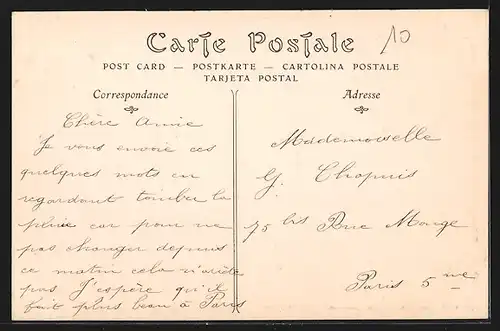 Carte Postale
10
POST CARD — POSTKARTE — CARTOLINA POSTALE
TARJETA POSTAL
Correspondance
Chère Amie
Je vous envoie ces
quelques mots en
regardant tomber la
pluie car pour ne
pas changer depuis
ce matin cela n'arrête
pas J'espère qu'il
fait plus beau à Paris
Adresse
Mademoiselle
G. Chapuis
75 bis Rue Monge
Paris 5me